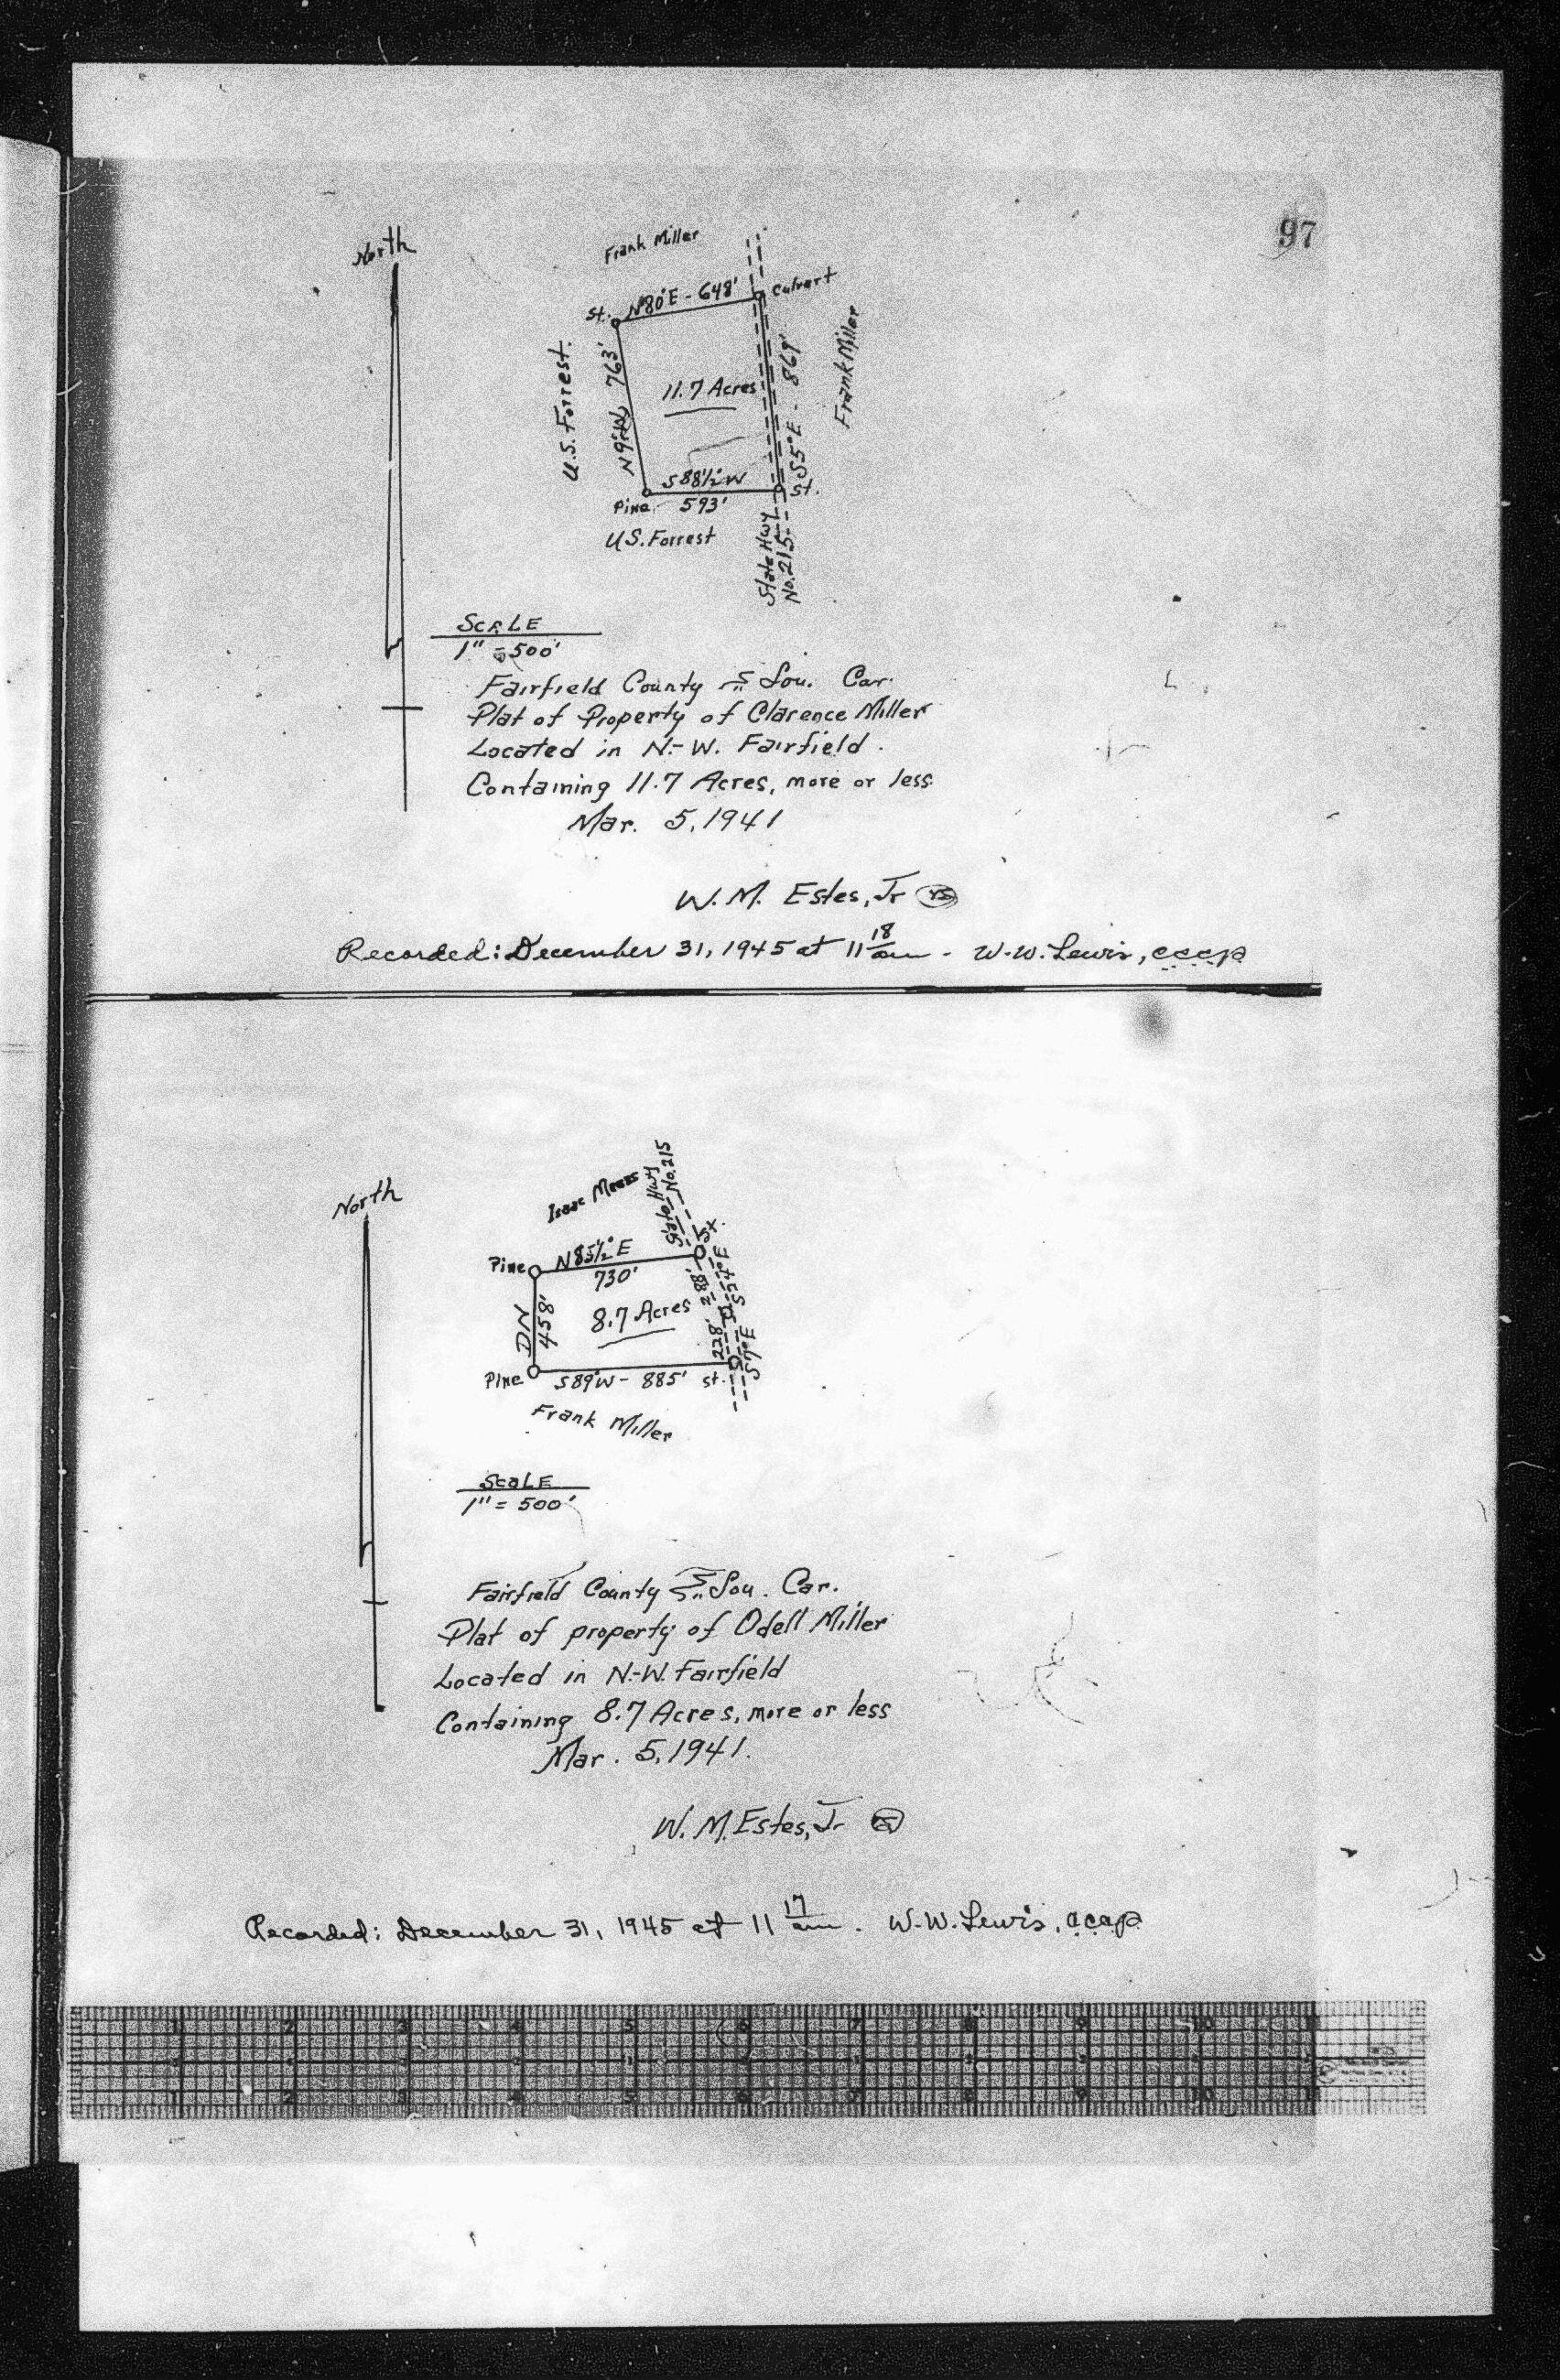 97
North
Frank Miller
St. N80°E - 648' Culvert
U.S. Forrest.
N9°W 763'
11.7 Acres
S5°E - 869'
Frank Miller
S88½°W
Pine 593' St.
U.S. Forrest
State Hwy
No. 215
SCALE
1" = 500'
Fairfield County Sou. Car.
Plat of Property of Clarence Miller
Located in N.-W. Fairfield.
Containing 11.7 Acres, more or less.
Mar. 5, 1941
W. M. Estes, Jr
Recorded: December 31, 1945 at 11 18 am - W.W. Lewis, cccp
North
Isaac Means
State Hwy
No. 215
Pine N85½°E St.
730'
DN
458'
8.7 Acres
288'
S24°E
228'
S7°E
Pine S89°W - 885' st.
Frank Miller
SCALE
1" = 500'
Fairfield County Sou. Car.
Plat of property of Odell Miller
Located in N.-W. Fairfield
Containing 8.7 Acres, more or less
Mar. 5, 1941.
W. M. Estes, Jr
Recorded: December 31, 1945 at 11 17 am. W.W. Lewis, cccp
1 2 3 4 5 6 7 8 9 10 11
1 2 3 4 5 6 7 8 9 10